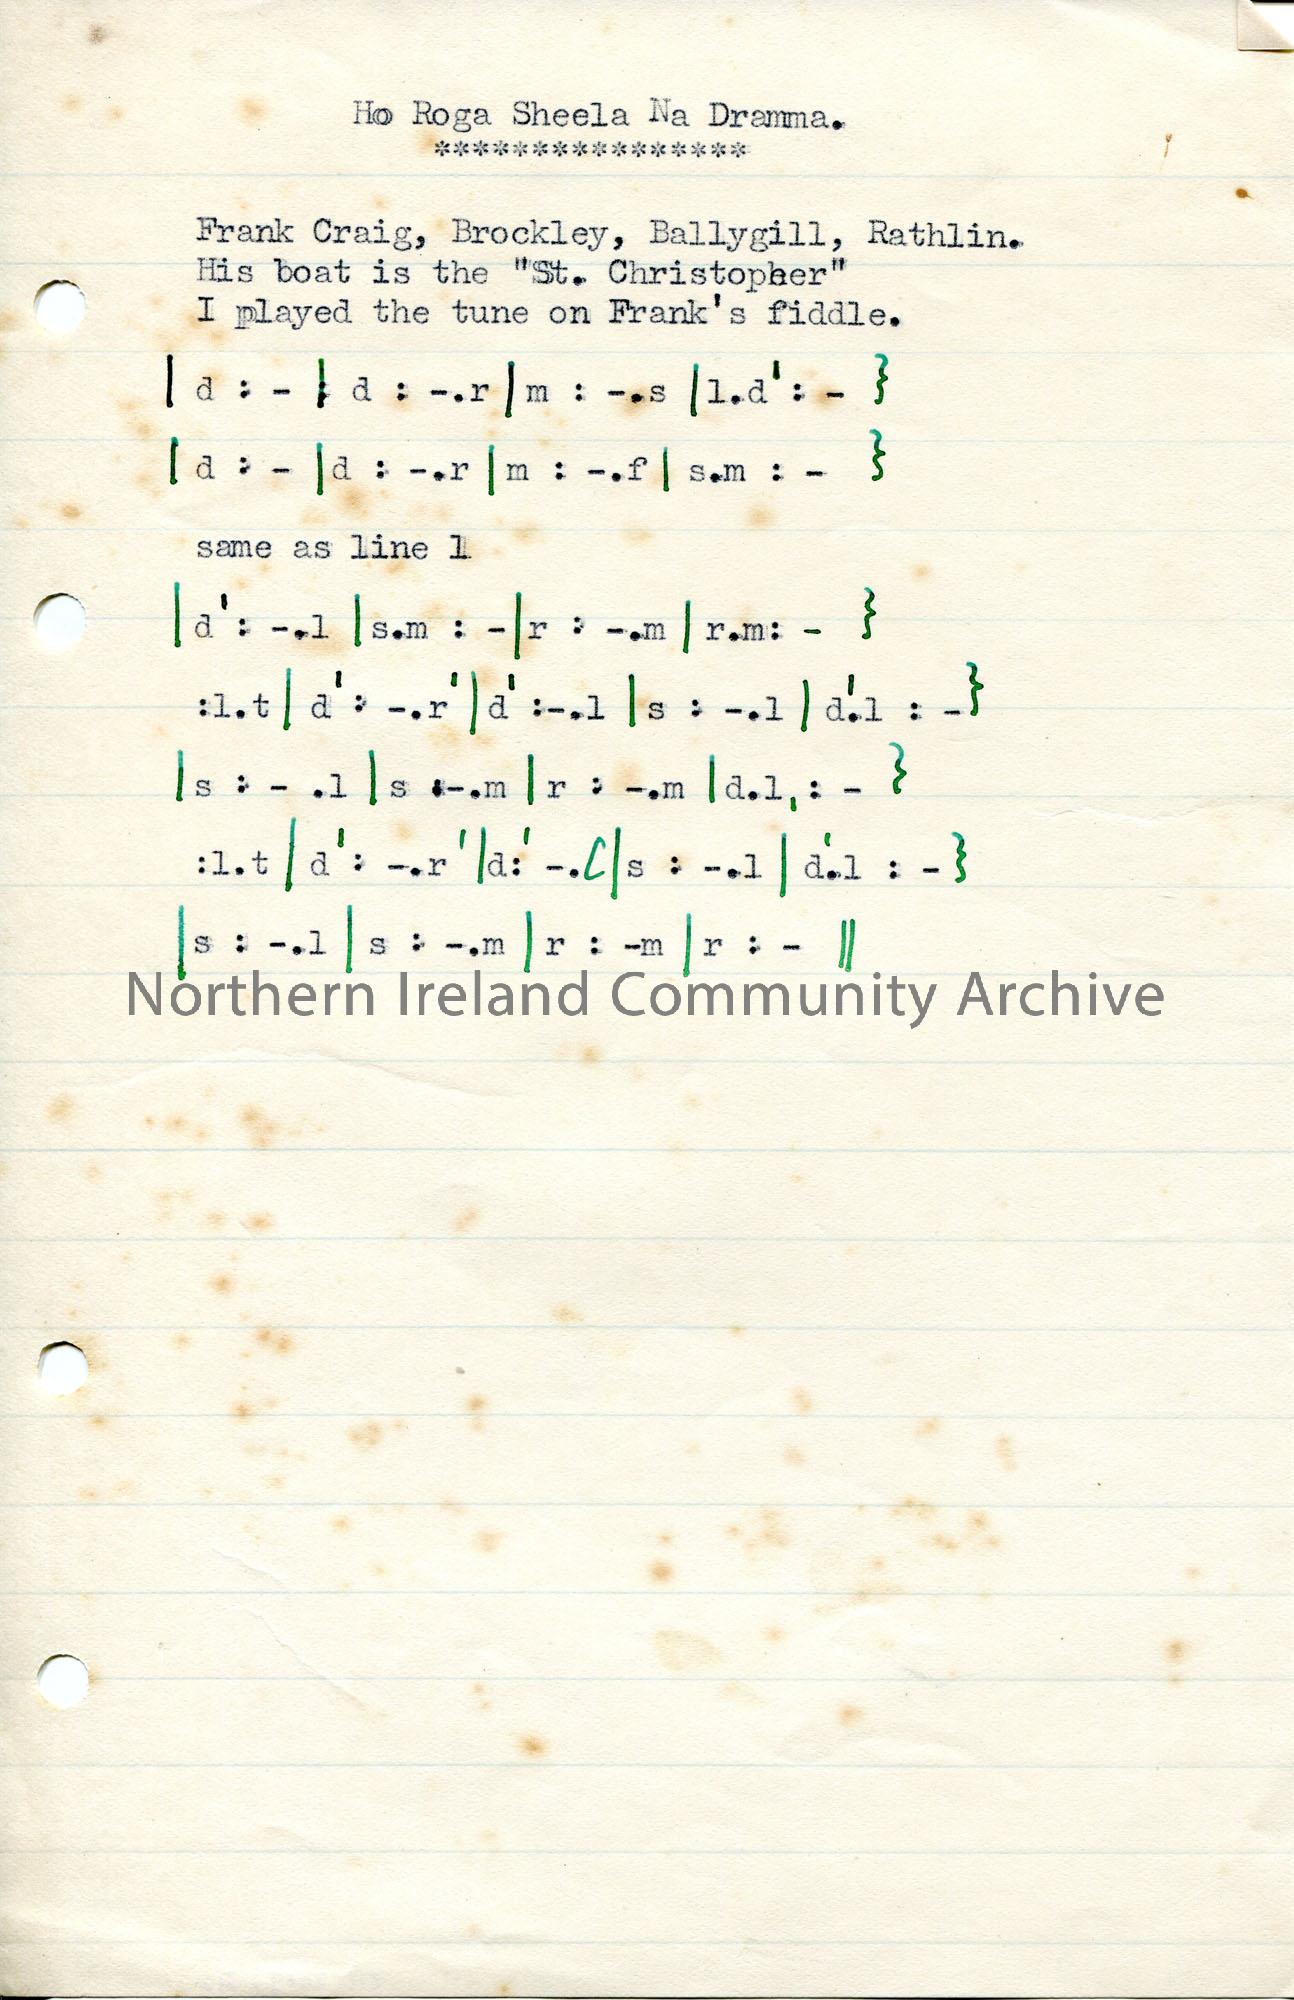 Ho Roga Sheela Na Dramma.
****************
Frank Craig, Brockley, Ballygill, Rathlin.
His boat is the "St. Christopher"
I played the tune on Frank's fiddle.
| d : - | d : -.r | m : -.s | l.d' : - }
| d : - | d : -.r | m : -.f | s.m : - }
same as line 1
| d' : -.l | s.m : - | r : -.m | r.m: - }
:l.t | d' : -.r' | d' :-.l | s : -.l | d'.l : - }
| s : - .l | s :-.m | r : -.m | d.l, : - }
:l.t | d' : -.r' | d:' -.l | s : -.l | d'.l : - }
| s : -.l | s : -.m | r : -m | r : - ||
Northern Ireland Community Archive